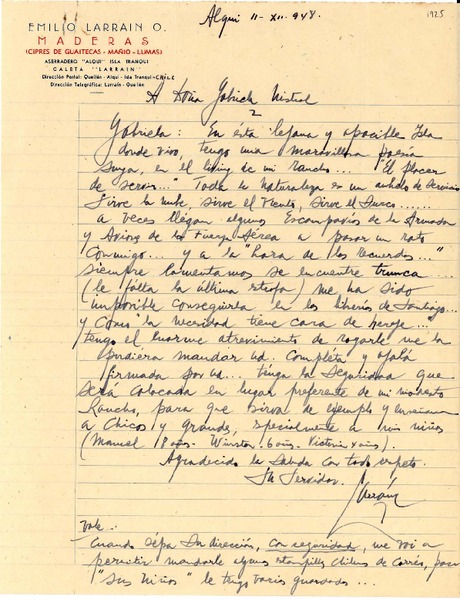 1925
EMILIO LARRAIN O.
MADERAS
(CIPRES DE GUAITECAS - MAÑIO - LUMAS)
ASERRADERO "ALQUI" ISLA TRANQUI
CALETA "LARRAIN"
Dirección Postal: Quellón - Alqui - Isla Tranqui - CHILE
Dirección Telegráfica: Larraín - Quellón
Alqui 11-XII-948.
A Doña Gabriela Mistral
Gabriela: En ésta lejana y apacible Isla
donde vivo, tengo una maravillosa poesía
suya, en el living de mi rancho... "El placer
de servir..." Toda la Naturaleza es un anhelo de Servicio
Sirve la nube, Sirve el Viento, Sirve el Surco.....
a veces llegan algunos Escampavías de la Armada
y Aviones de la Fuerza Aérea a pasar un rato
Conmigo... y a la "hora de los recuerdos..."
siempre lamentamos se encuentre trunca
(le falta la última estrofa) me ha sido
imposible conseguirla en las librerías de Santiago...
y como "la necesidad tiene cara de hereje..."
tengo el enorme atrevimiento de rogarle me la
pudiera mandar ud. Completa y ojalá
firmada por ud... tenga la seguridad que
será colocada en lugar preferente de mi modesto
Rancho, para que sirva de ejemplo y enseñanza
a Chicos y grandes, especialmente a mis niños
(Manuel 8 años - Winston 6 años - Victoria 4 años).
Agradecido la Saluda con todo respeto
Su Servidor
Larraín
Vale.
Cuando sepa su dirección, con seguridad, me voy a
permitir mandarle algunas estampillas Chilenas de Correo, para
"Sus Niños" le tengo varias guardadas...